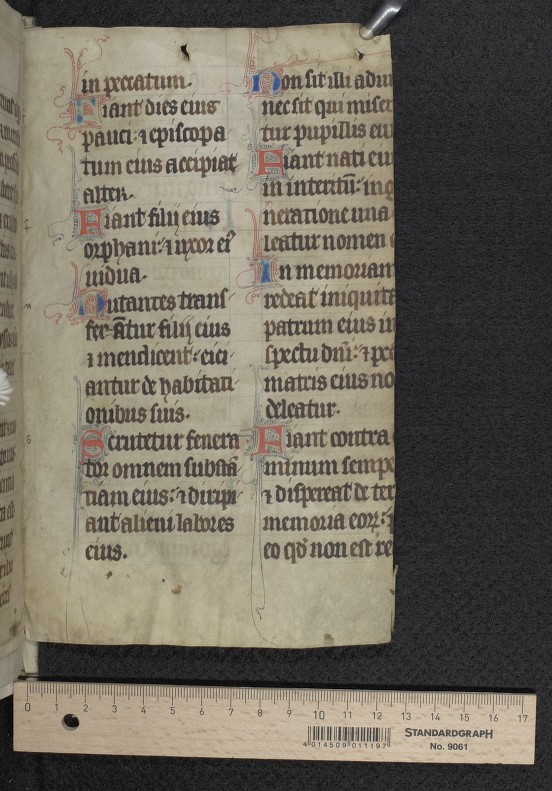 in peccatum.
Fiant dies eius
pauci: ⁊ episcopa
tum eius accipiat
alter.
Fiant filij eius
orphani: ⁊ uxor ei᷒
uidua.
Nutantes trans
fe ātur filij eius
⁊ mendicent: eici
antur de habitati
onibus suis.
Scrutetur fenera
tor omnem substā
tiam eius: ⁊ diripi
ant alieni labores
eius.
Non sit illi adiu
nec sit qui miser
tur pupillis eiu
Fiant nati eiu
in interitū: in g
neratione una
leatur nomen
In memoriam
redeat iniquita
patrum eius in
spectu dnī: ⁊ pec
matris eius no
deleatur.
Fiant contra
minum sempe
⁊ dispereat de ter
memoria eoꝝ:
eo qd̓ non est re
0 1 2 3 4 5 6 7 8 9 10 11 12 13 14 15 16 17
4 014509 011197
STANDARDGRAPH
No. 9061